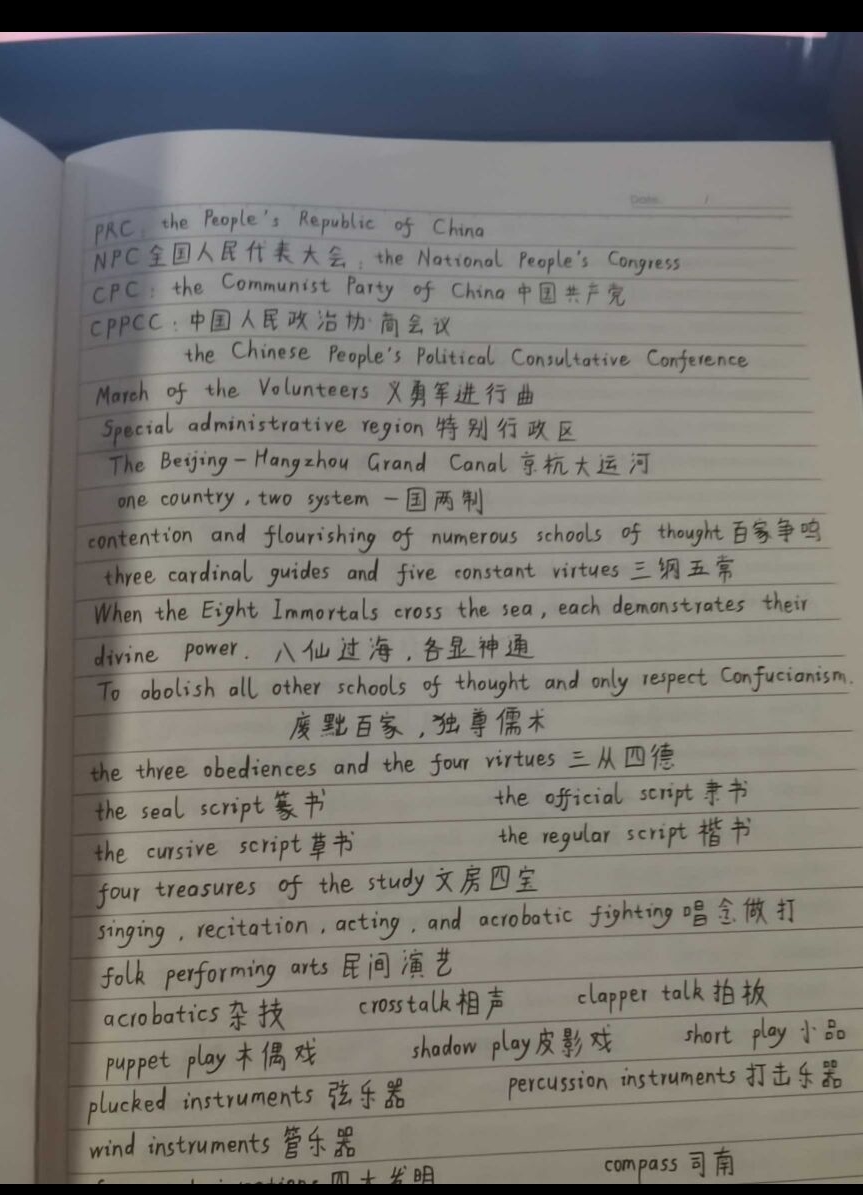 Date. /
PRC: the People's Republic of China
NPC 全国人民代表大会: the National People's Congress
CPC: the Communist Party of China 中国共产党
CPPCC: 中国人民政治协商会议
the Chinese People's Political Consultative Conference
March of the Volunteers 义勇军进行曲
Special administrative region 特别行政区
The Beijing-Hangzhou Grand Canal 京杭大运河
one country, two system 一国两制
contention and flourishing of numerous schools of thought 百家争鸣
three cardinal guides and five constant virtues 三纲五常
When the Eight Immortals cross the sea, each demonstrates their
divine power. 八仙过海,各显神通
To abolish all other schools of thought and only respect Confucianism.
废黜百家,独尊儒术
the three obediences and the four virtues 三从四德
the seal script 篆书 the official script 隶书
the cursive script 草书 the regular script 楷书
four treasures of the study 文房四宝
singing, recitation, acting, and acrobatic fighting 唱念做打
folk performing arts 民间演艺
acrobatics 杂技 crosstalk 相声 clapper talk 拍板
puppet play 木偶戏 shadow play 皮影戏 short play 小品
plucked instruments 弦乐器 percussion instruments 打击乐器
wind instruments 管乐器
四大发明 compass 司南